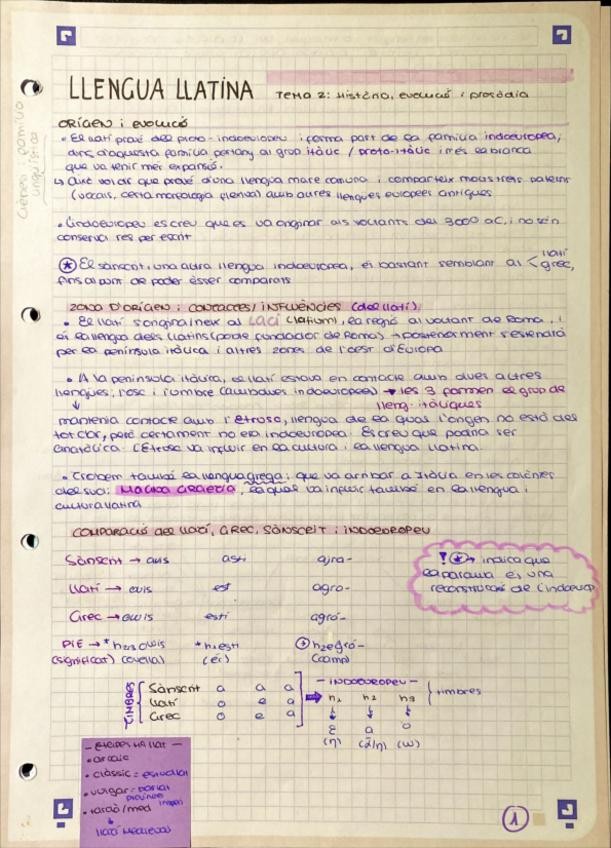 LLENGUA LLATINA
TEMA 2: Història, evolució i prosòdia
Crèpes família lingüística
ORÍGEN i EVOLUCIÓ
• El llatí prové del proto-indoeuropeu i forma part de la família indoeuropea,
dins d'aquesta família pertany al grup itàlic / proto-itàlic i és la branca
que va tenir més expansió.
↳ Això vol dir que prové d'una llengua mare comuna i comparteix mots, trets
(vocals, certa morfologia flexiva) amb altres llengües europees antigues
• L'indoeuropeu es creu que es va originar als voltants del 3000 aC, i no s'en
conserva res per escrit
* El sànscrit, una altra llengua indoeuropea, és bastant semblant al < llatí
grec,
fins al punt de poder ésser comparats
ZONA D'ORÍGEN i CONTACTES/INFLUÈNCIES (del llatí).
• El llatí s'origina neix al Laci (latium), la regió al voltant de Roma, i
és la llengua dels llatins (poble fundador de Roma) → posteriorment s'estendrà
per la península itàlica i altres zones de l'oest d'Europa
• A la península itàlica, el llatí estava en contacte amb dues altres
llengües, l'osc i l'umbre (ambdues indoeuropees) → les 3 formen el grup de
lleng. itàliques
↓
mantenia contacte amb l'Etrusc, llengua de la qual l'origen no està del
tot clar, però certament no era indoeuropea. Es creu que podria ser
anatòlica. L'Etrusc va influir en la cultura i la llengua llatina.
• Trobem també la llengua grega: que va arribar a Itàlia en les colònies
del sud: MAGNA GRAECIA, la qual va influir també en la llengua i
cultura llatina
COMPARACIÓ del LLATÍ, GREC, SÀNSCRIT i INDOEUROPEU
Sànscrit → avis asti ajra-
Llatí → ovis est agro-
Grec → owis esti agró-
PIE → *h₃ewis *h₁esti *h₂egró-
(significat) (ovella) (és) (camp)
! * → indica que
la paraula és una
reconstrucció de l'indoeurop
TIMBRES
Sànscrit a a a
Llatí o e a
Grec o e a
- INDOEUROPEU -
h₁ h₂ h₃ timbres
↓ ↓ ↓
ε a o
(η) (ᾱ/η) (ω)
- ETAPES del llatí -
• arcaic
• clàssic: estudiat
• vulgar: parlat
províncies
• tardà/med
↓
llatí MEDIEVAL
1